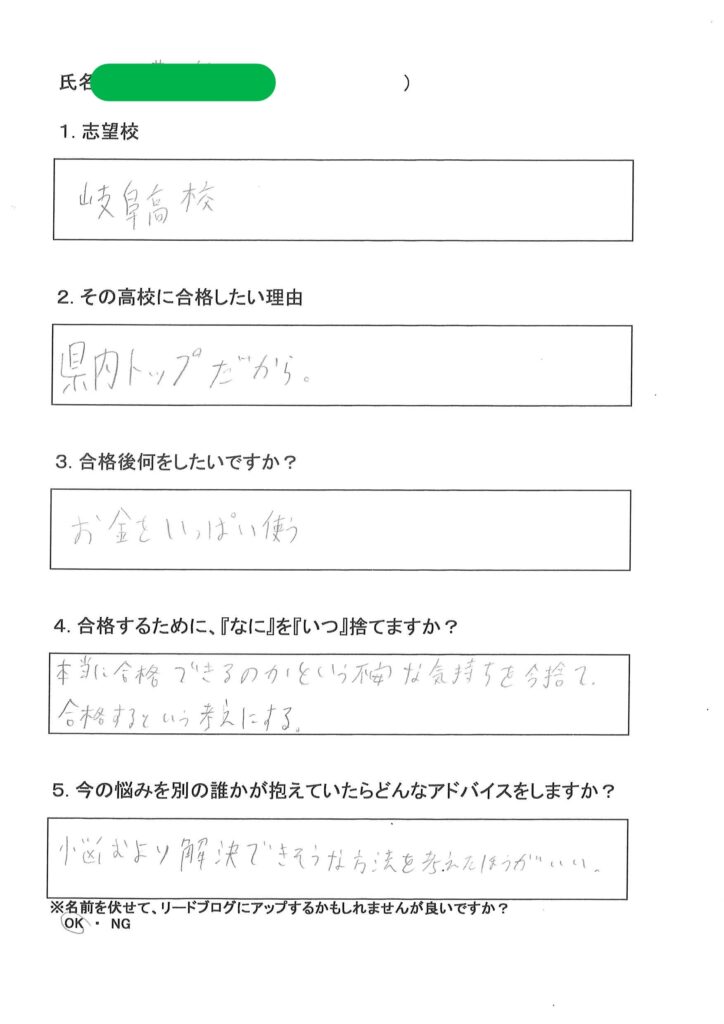 氏名 )
1. 志望校
岐阜高校
2. その高校に合格したい理由
県内トップだから。
3. 合格後何をしたいですか？
お金をいっぱい使う
4. 合格するために、『なに』を『いつ』捨てますか？
本当に合格できるのかという不安な気持ちを今捨て、
合格するという考えにする。
5. 今の悩みを別の誰かが抱えていたらどんなアドバイスをしますか？
悩むより解決できそうな方法を考えたほうがいい。
※名前を伏せて、リードブログにアップするかもしれませんが良いですか？
OK ・ NG